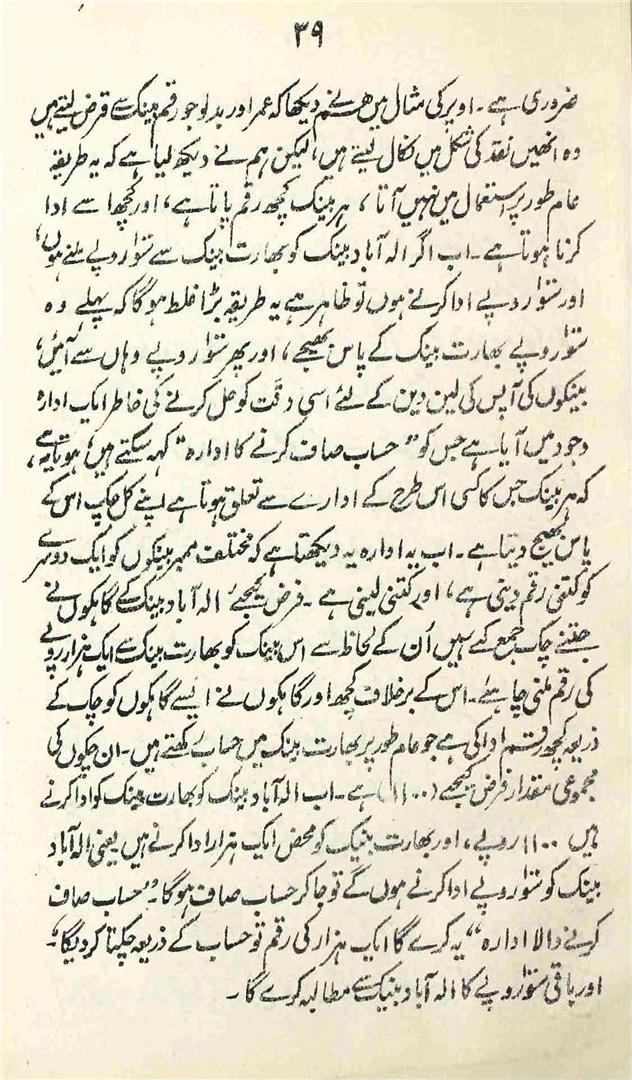 ۳۹
ضروری ہے۔ اوپر کی مثال میں ہم نے دیکھا کہ عمر اور بدلو جو رقم بینک سے قرض لیتے ہیں
وہ انھیں نقد کی شکل میں نکال لیتے ہیں، لیکن ہم نے دیکھ لیا ہے کہ یہ طریقہ
عام طور پر استعمال میں نہیں آتا، ہر بینک کچھ رقم پاتا ہے، اور کچھ اسے ادا
کرنا ہوتا ہے۔ اب اگر الہ آباد بینک کو بھارت بینک سے سَو روپے ملنے ہوں،
اور سَو روپے ادا کرنے ہوں تو ظاہر ہے یہ طریقہ بڑا غلط ہوگا کہ پہلے وہ
سَو روپے بھارت بینک کے پاس بھیجے، اور پھر سَو روپے وہاں سے آئیں،
بینکوں کی آپس کی لین دین کے لئے اسی دقّت کو حل کرنے کی خاطر ایک ادارہ
وجود میں آیا ہے جس کو "حساب صاف کرنے کا ادارہ" کہہ سکتے ہیں، ہوتا یہ ہے،
کہ ہر بینک جس کا کسی اس طرح کے ادارے سے تعلق ہوتا ہے اپنے کل چک اس کے
پاس بھیج دیتا ہے۔ اب یہ ادارہ یہ دیکھتا ہے کہ مختلف ممبر بینکوں کو ایک دوسرے
کو کتنی رقم دینی ہے، اور کتنی لینی ہے۔ فرض کیجئے الہ آباد بینک کے گاہکوں نے
جتنے چک جمع کئے ہیں اُن کے لحاظ سے اس بینک کو بھارت بینک سے ایک ہزار روپے
کی رقم ملنی چاہئے۔ اس کے برخلاف کچھ اور گاہکوں نے ایسے گاہکوں کو چک کے
ذریعہ کچھ رقم ادا کی ہے جو عام طور پر بھارت بینک میں حساب رکھتے ہیں۔ ان چکوں کی
مجموعی مقدار فرض کیجئے (۱۱۰۰) ہے۔ اب الہ آباد بینک کو بھارت بینک کو ادا کرنے
ہیں ۱۱۰۰ روپے، اور بھارت بینک کو محض ایک ہزار ادا کرنے ہیں یعنی الہ آباد
بینک کو سَو روپے ادا کرنے ہوں گے تو جا کر حساب صاف ہوگا۔ "حساب صاف
کرنے والا ادارہ" یہ کرے گا ایک ہزار کی رقم تو حساب کے ذریعہ چکتا کر دیگا،
اور باقی سَو روپے کا الہ آباد بینک سے مطالبہ کرے گا۔